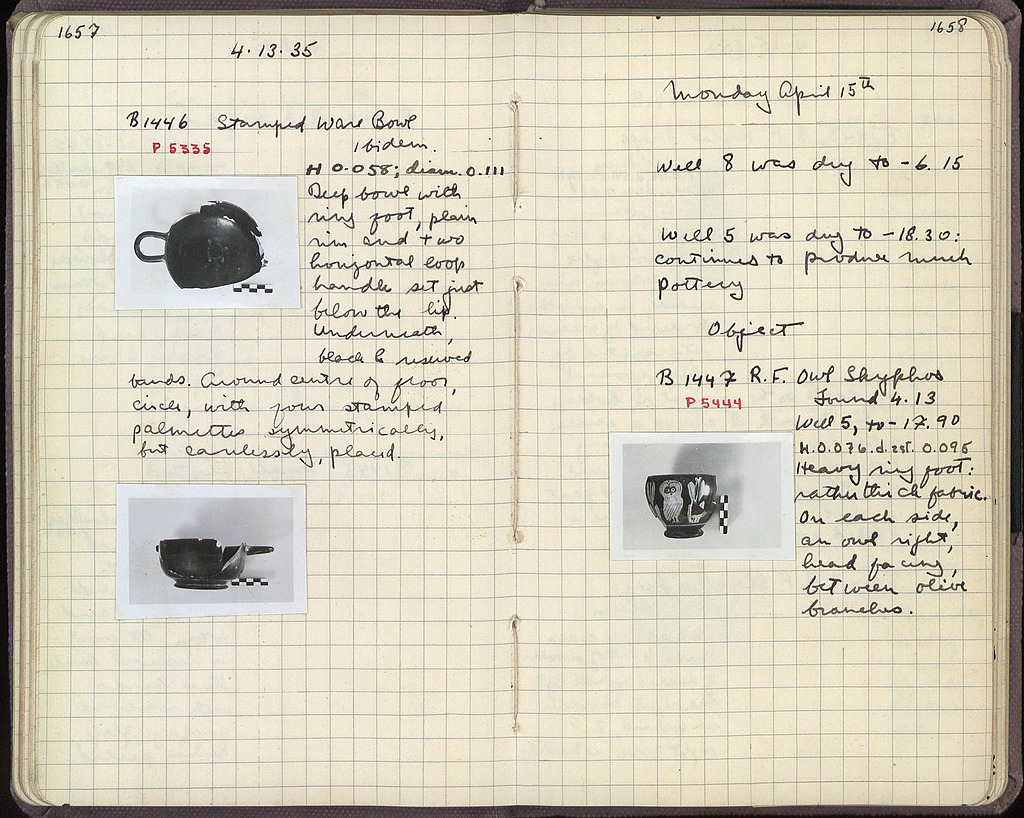 1657
4.13.35
B1446 Stamped Ware Bowl
P 5335
ibidem.
H 0.058; diam. 0.111
Deep bowl with
ring foot, plain
rim and two
horizontal loop
handles set just
below the lip.
Underneath,
black & reserved
bands. Around centre of floor,
circle, with four stamped
palmettes symmetrically,
but carelessly, placed.
1658
Monday April 15th
Well 8 was dug to -6.15
Well 5 was dug to -18.30:
continues to produce much
pottery
Object
B 1447 R.F. Owl Skyphos
P 5444
Found 4.13
Well 5, to -17.90
H. 0.076. d. est. 0.095
Heavy ring foot:
rather thick fabric.
On each side,
an owl right,
head facing,
between olive
branches.